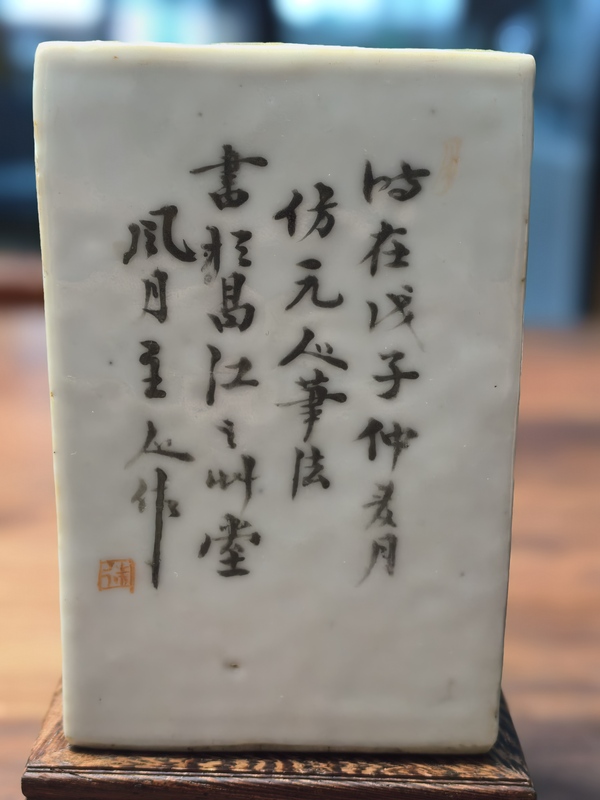 時在戊子仲夏月
仿元人筆法
書於昌江之艸堂
風月主人作